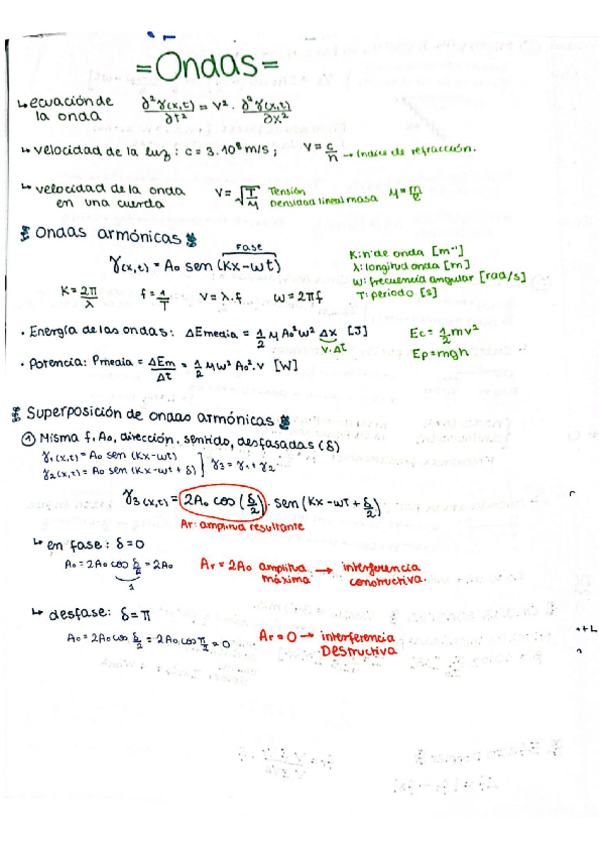 = Ondas =
↳ ecuación de la onda ∂²γ(x,t)/∂t² = v² · ∂²γ(x,t)/∂x²
↳ velocidad de la luz: c = 3·10⁸ m/s ; v = c/n → Indice de refracción.
↳ velocidad de la onda en una cuerda v = √(T/μ) Tensión / Densidad lineal masa μ = m/l
Ondas armónicas
Fase
γ(x,t) = A₀ sen (Kx - ωt)
K: nº de onda [m⁻¹]
λ: longitud onda [m]
ω: frecuencia angular [rad/s]
T: período [s]
K = 2π/λ f = 1/T v = λ.f ω = 2πf
· Energía de las ondas: ΔEmedia = 1/2 μ A₀² ω² Δx [J] Ec = 1/2 mv²
v.Δt
Ep = mgh
· Potencia: Pmedia = ΔEm/Δt = 1/2 μ ω² A₀². v [W]
Superposición de ondas armónicas
① Misma f, A₀, dirección, sentido, desfasadas (δ)
γ₁(x,t) = A₀ sen (Kx - ωt)
γ₂(x,t) = A₀ sen (Kx - ωt + δ) ] γ₃ = γ₁ + γ₂
γ₃(x,t) = 2A₀ cos (δ/2) · sen (Kx - ωt + δ/2)
Ar: amplitud resultante
↳ en fase: δ = 0
A₀ = 2A₀ cos δ/2 = 2A₀ Ar = 2A₀ amplitud máxima → interferencia constructiva.
1
↳ desfase: δ = π
A₀ = 2A₀ cos δ/2 = 2A₀ cos π/2 = 0 Ar = 0 → interferencia Destructiva
+L